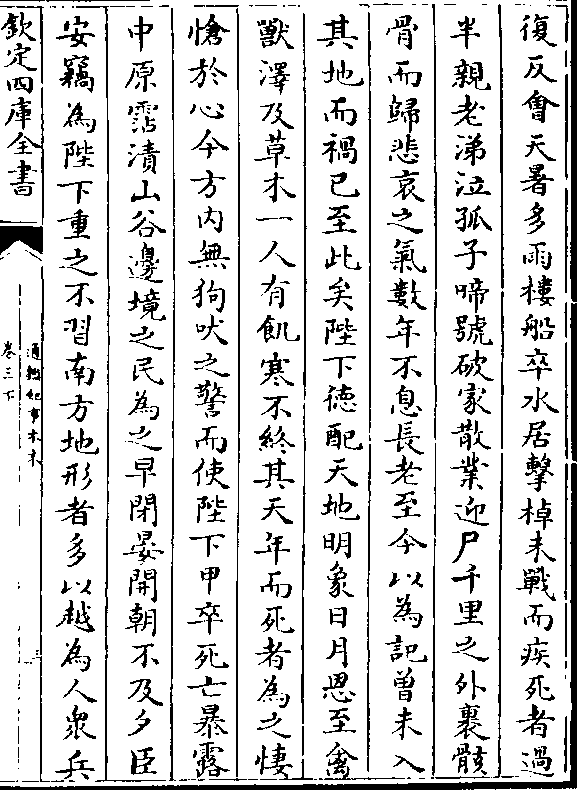 復反會天暑多雨樓船卒水居擊棹未戰而疾死者過
半親老涕泣孤子啼號破家散業迎尸千里之外裹骸
骨而歸悲哀之氣數年不息長老至今以為記曾未入
其地而禍已至此矣陛下徳配天地明象日月恩至禽
獸澤及草木一人有飢寒不終其天年而死者為之悽
愴於心今方内無狗吠之警而使陛下甲卒死亡暴露
中原霑漬山谷邊境之民為之早閉晏開朝不及夕臣
安竊為陛下重之不習南方地形者多以越為人衆兵
欽定四庫全書
通鑑紀事本末
卷三下